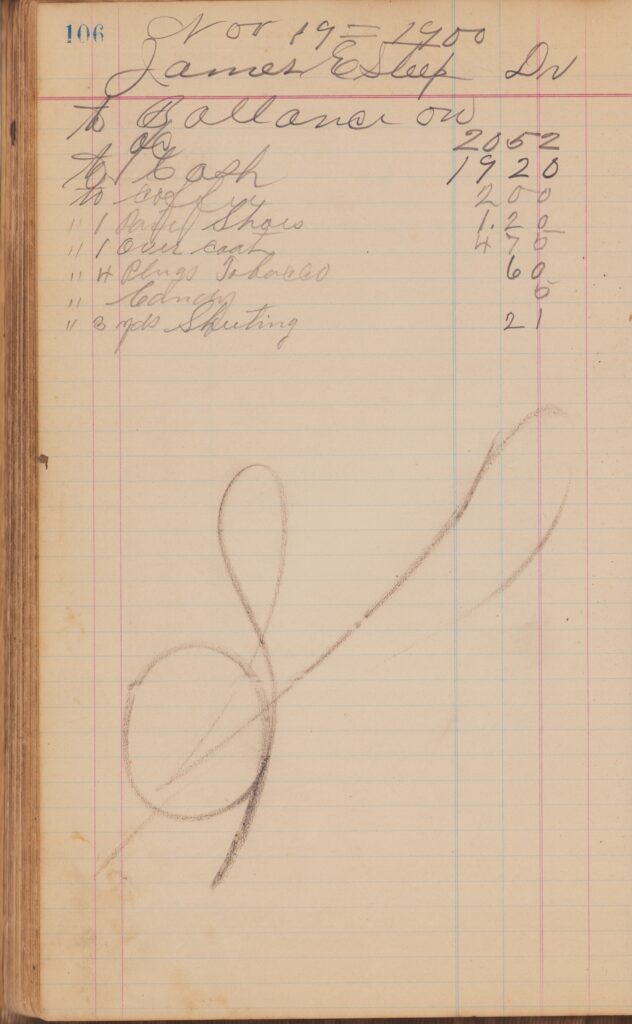 106
Nov 19 = 1900
James Estep Dr
to Ballance on
2052
to Cash 1920
to 200
" 1 Pair Shoes 1.20
" 1 Over coat 475
" 4 Plugs Tobacco 60
" Candy 5
" 3 yds Shirting 21